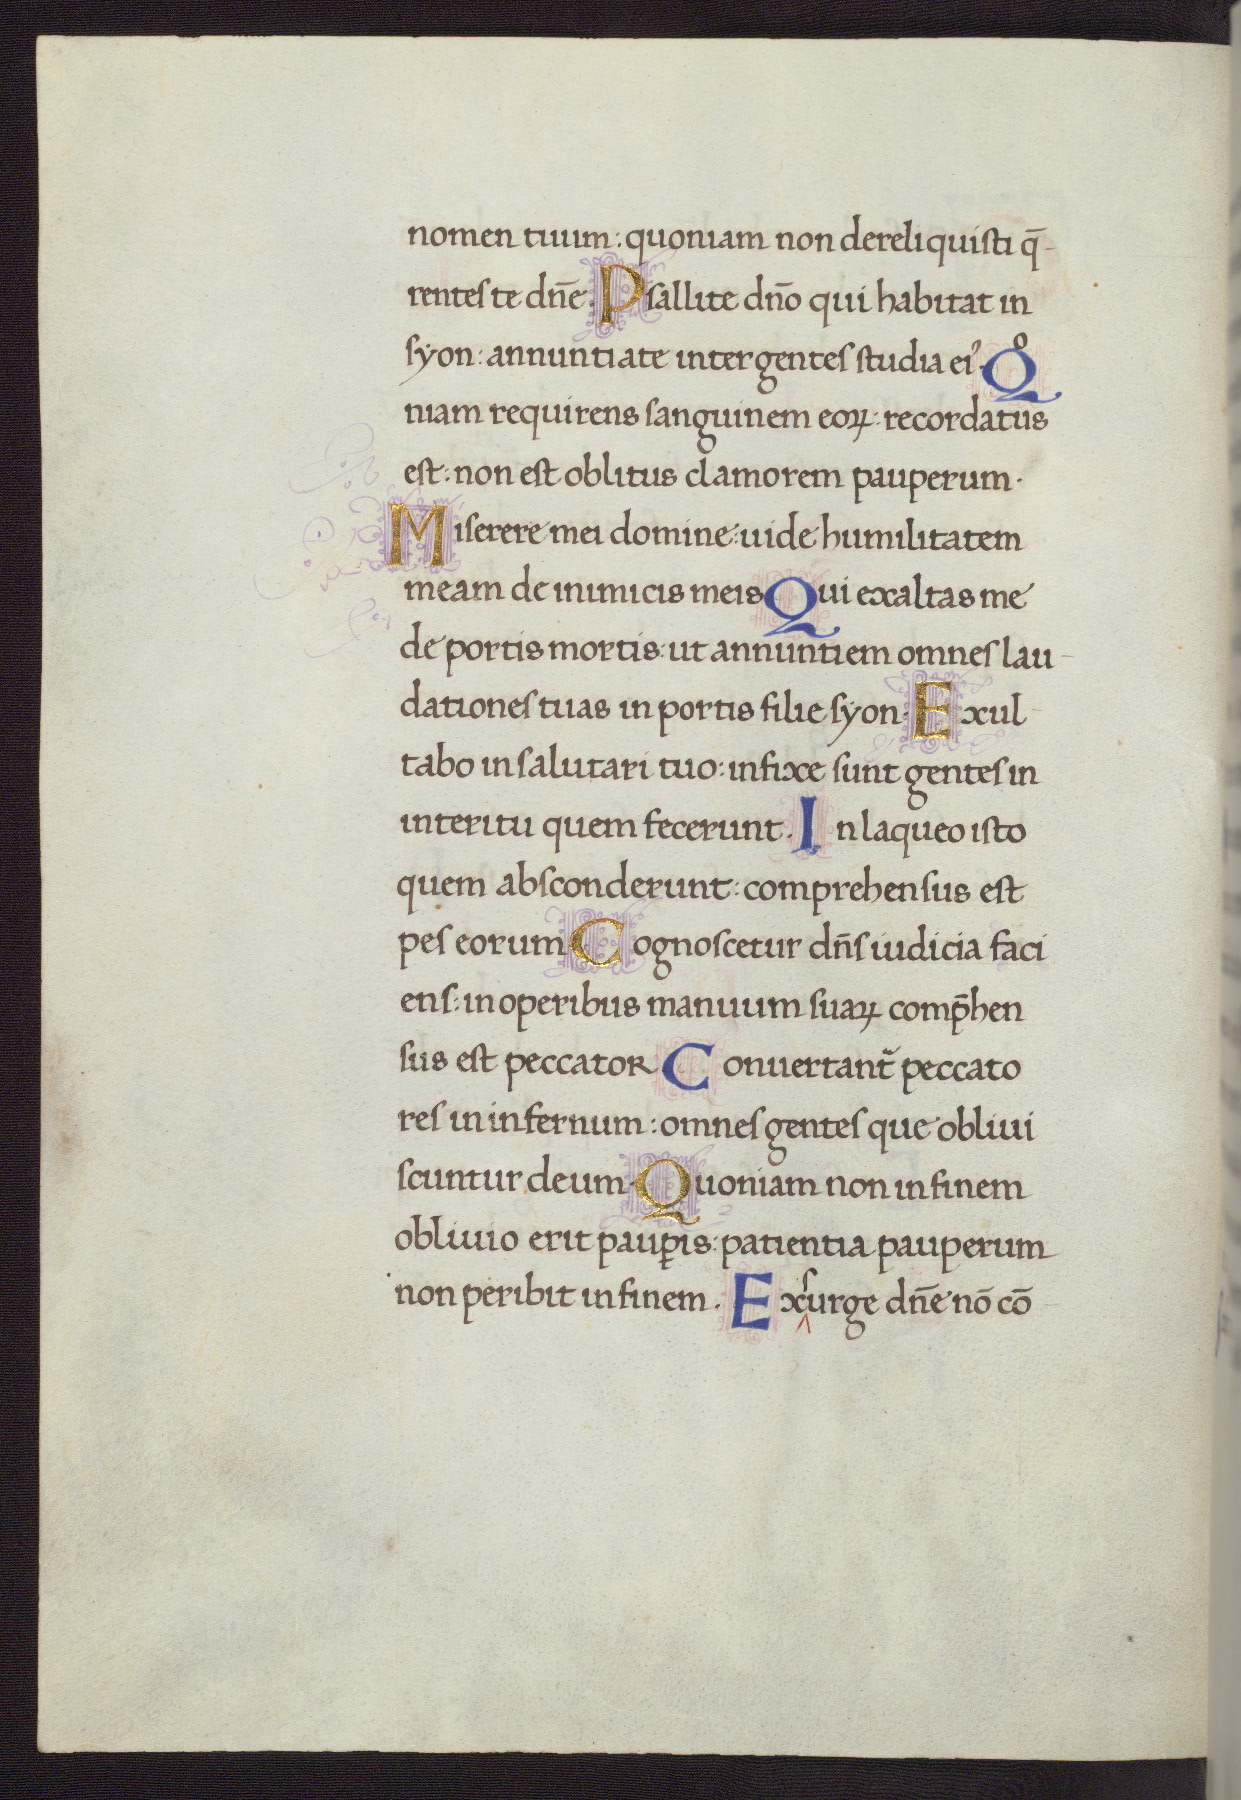 nomen tuum: quoniam non dereliquisti q̄-
rentes te dn̄e. Psallite dn̄o qui habitat in
syon: annuntiate inter gentes studia ei᾿. Qͦ
niam requirens sanguinem eoꝝ: recordatus
est: non est oblitus clamorem pauperum.
Miserere mei domine: uide humilitatem
meam de inimicis meis Qui exaltas me
de portis mortis: ut annuntiem omnes lau-
dationes tuas in portis filie syon. Exul-
tabo in salutari tuo: infixe sunt gentes in
interitu quem fecerunt. In laqueo isto
quem absconderunt: comprehensus est
pes eorum Cognoscetur dn̄s iudicia faci
ens: in operibus manuum suaꝝ comp̄hen
sus est peccator Conuertant᷑ peccato
res in infernum: omnes gentes que obliui
scuntur deum. Quoniam non in finem
obliuio erit paup̱is: patientia pauperum
non peribit in finem. Exsurge dn̄e nō cō-